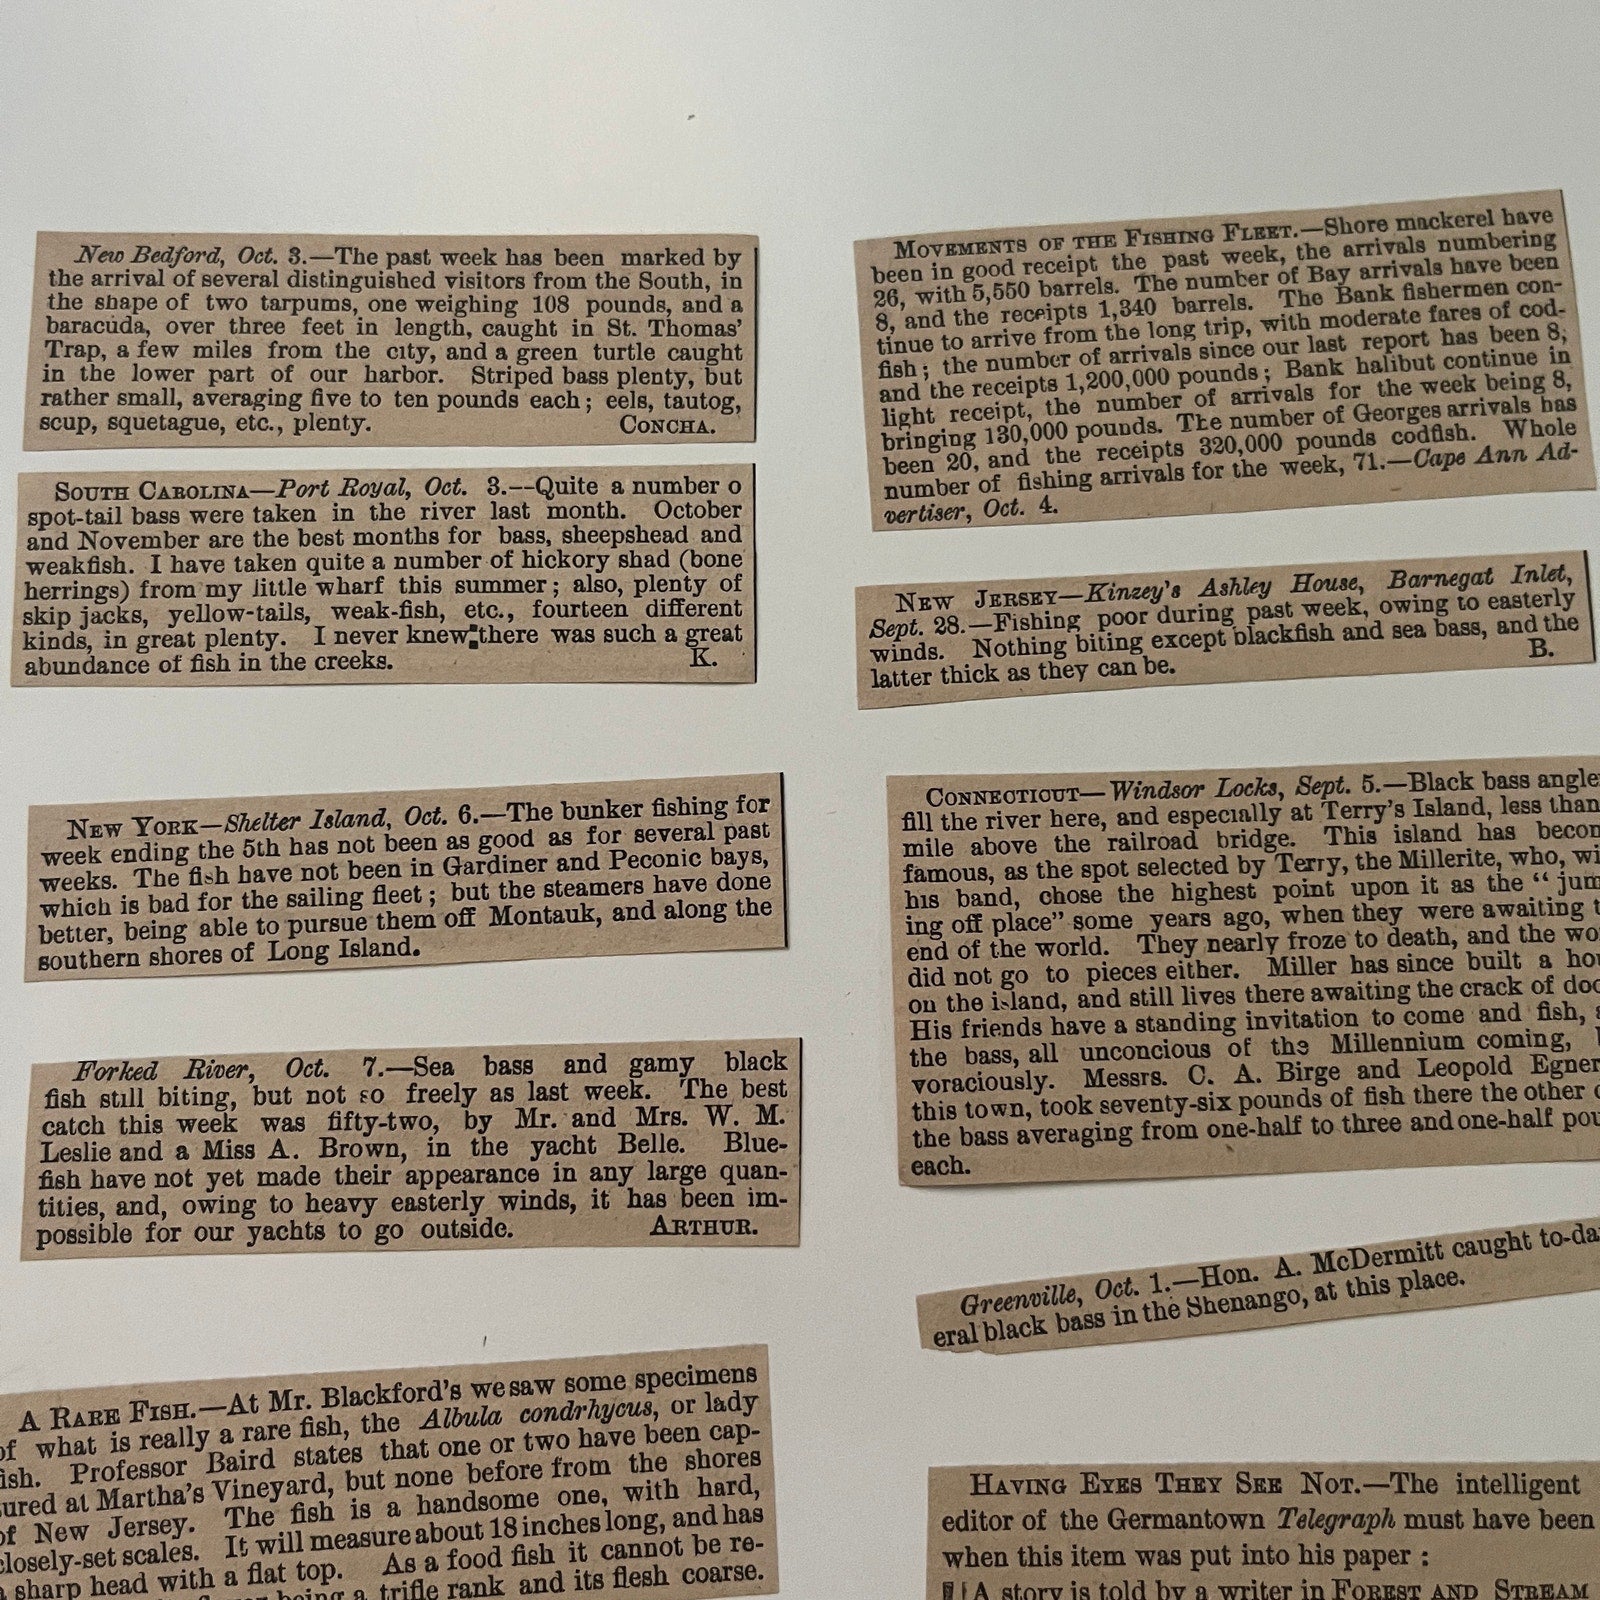 New Bedford, Oct. 3.—The past week has been marked by
the arrival of several distinguished visitors from the South, in
the shape of two tarpums, one weighing 108 pounds, and a
baracuda, over three feet in length, caught in St. Thomas'
Trap, a few miles from the city, and a green turtle caught
in the lower part of our harbor. Striped bass plenty, but
rather small, averaging five to ten pounds each; eels, tautog,
scup, squetague, etc., plenty. CONCHA.
SOUTH CAROLINA—Port Royal, Oct. 3.—-Quite a number o
spot-tail bass were taken in the river last month. October
and November are the best months for bass, sheepshead and
weakfish. I have taken quite a number of hickory shad (bone
herrings) from my little wharf this summer; also, plenty of
skip jacks, yellow-tails, weak-fish, etc., fourteen different
kinds, in great plenty. I never knew there was such a great
abundance of fish in the creeks. K.
NEW YORK—Shelter Island, Oct. 6.—The bunker fishing for
week ending the 5th has not been as good as for several past
weeks. The fish have not been in Gardiner and Peconic bays,
which is bad for the sailing fleet; but the steamers have done
better, being able to pursue them off Montauk, and along the
southern shores of Long Island.
Forked River, Oct. 7.—Sea bass and gamy black
fish still biting, but not so freely as last week. The best
catch this week was fifty-two, by Mr. and Mrs. W. M.
Leslie and a Miss A. Brown, in the yacht Belle. Blue-
fish have not yet made their appearance in any large quan-
tities, and, owing to heavy easterly winds, it has been im-
possible for our yachts to go outside. ARTHUR.
A RARE FISH.—At Mr. Blackford's we saw some specimens
of what is really a rare fish, the Albula condrhycus, or lady
fish. Professor Baird states that one or two have been cap-
ured at Martha's Vineyard, but none before from the shores
of New Jersey. The fish is a handsome one, with hard,
closely-set scales. It will measure about 18 inches long, and has
a sharp head with a flat top. As a food fish it cannot be re-
being a trifle rank and its flesh coarse.
MOVEMENTS OF THE FISHING FLEET.—Shore mackerel have
been in good receipt the past week, the arrivals numbering
26, with 5,550 barrels. The number of Bay arrivals have been
8, and the receipts 1,340 barrels. The Bank fishermen con-
tinue to arrive from the long trip, with moderate fares of cod-
fish; the number of arrivals since our last report has been 8,
and the receipts 1,200,000 pounds; Bank halibut continue in
light receipt, the number of arrivals for the week being 8,
bringing 130,000 pounds. The number of Georges arrivals has
been 20, and the receipts 320,000 pounds codfish. Whole
number of fishing arrivals for the week, 71.—Cape Ann Ad-
vertiser, Oct. 4.
NEW JERSEY—Kinzey's Ashley House, Barnegat Inlet,
Sept. 28.—Fishing poor during past week, owing to easterly
winds. Nothing biting except blackfish and sea bass, and the
latter thick as they can be. B.
CONNECTICUT—Windsor Locks, Sept. 5.—Black bass angle
fill the river here, and especially at Terry's Island, less than
mile above the railroad bridge. This island has becom
famous, as the spot selected by Terry, the Millerite, who, wi
his band, chose the highest point upon it as the "jum
ing off place" some years ago, when they were awaiting t
end of the world. They nearly froze to death, and the wo
did not go to pieces either. Miller has since built a hou
on the island, and still lives there awaiting the crack of doo
His friends have a standing invitation to come and fish, a
the bass, all unconcious of the Millennium coming,
voraciously. Messrs. C. A. Birge and Leopold Egner
this town, took seventy-six pounds of fish there the other
the bass averaging from one-half to three and one-half pou
each.
Greenville, Oct. 1.—Hon. A. McDermitt caught to-da
eral black bass in the Shenango, at this place.
HAVING EYES THEY SEE NOT.—The intelligent
editor of the Germantown Telegraph must have been
when this item was put into his paper:
A story is told by a writer in FOREST AND STREAM